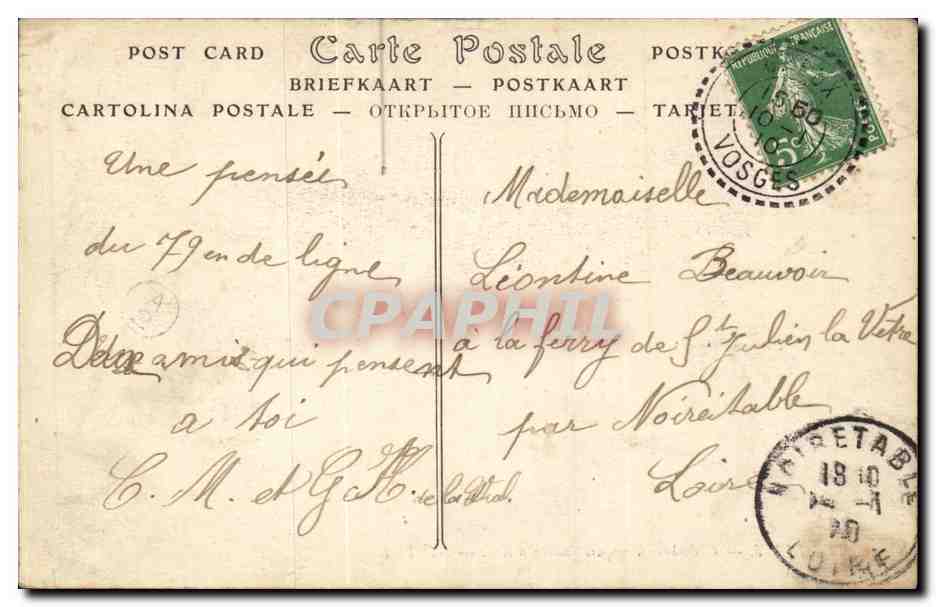 POST CARD Carte Postale POSTK
BRIEFKAART — POSTKAART
CARTOLINA POSTALE — ОТКРЫТОЕ ПИСЬМО — TARJETA
REPUBLIQUE FRANÇAISE
POSTES
5c
VOSGES
Une pensée
du 79en de ligne
Deux amis qui pensent
a toi
C. M. et G.
Mademoiselle
Léontine Beauvoir
à la ferry de St Julien la Vêtre
par Noirétable
Loire
CPAPHIL
NOIRETABLE
LOIRE